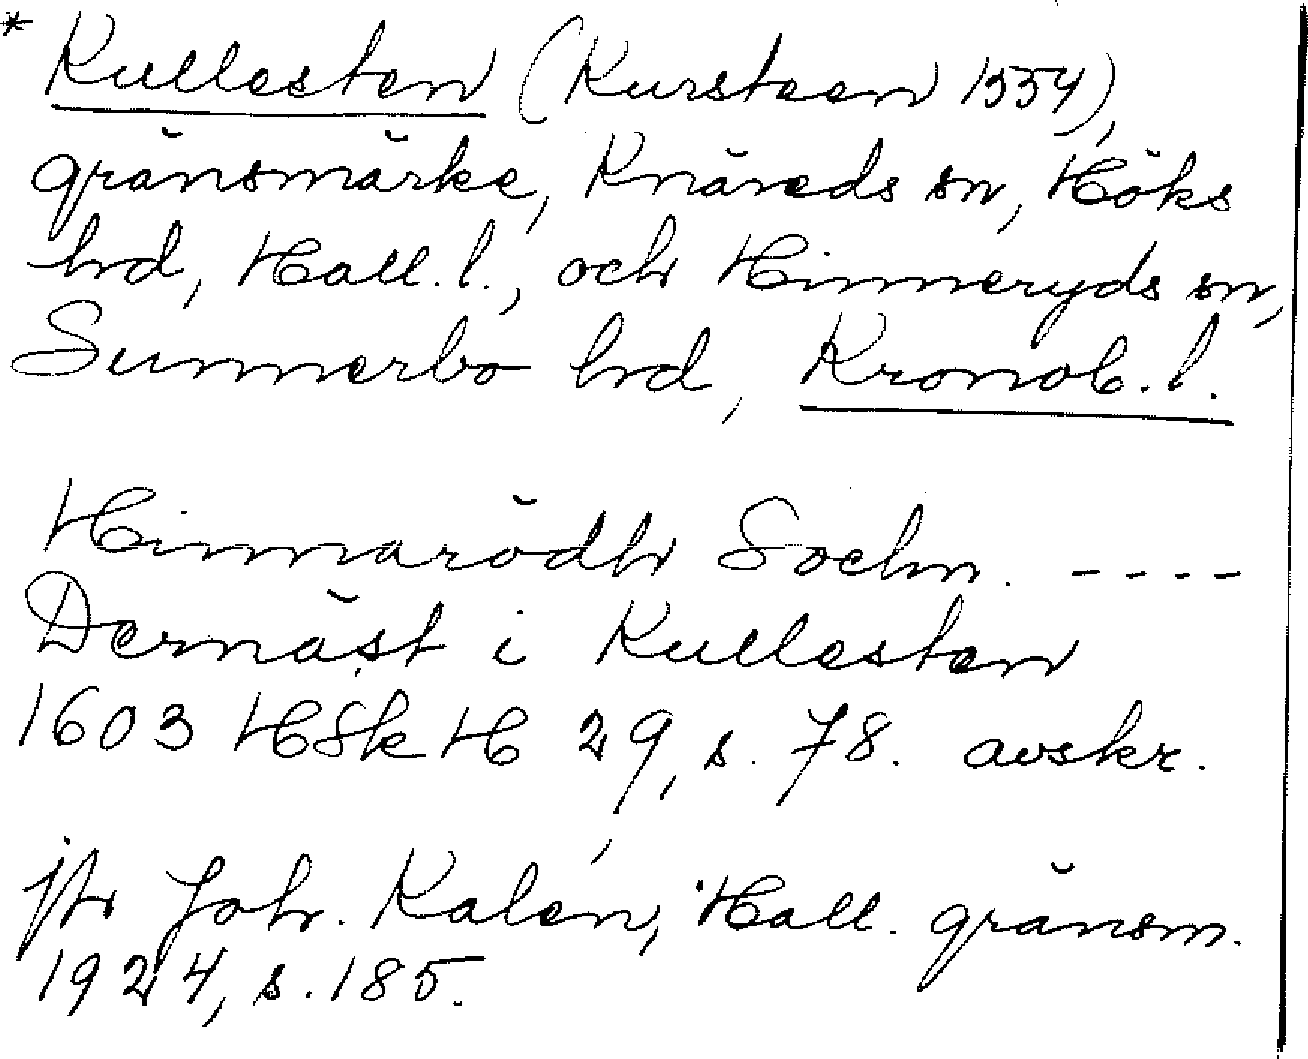 * Kullesten (Kursteen 1554),
gränsmärke, Knäreds sn, Höks
hrd, Hall. l., och Hinneryds sn,
Sunnerbo hrd, Kronob. l.
Hinnarödh Sochn. ----
Dernäst i Kullesten
1603 HSkH 29, s. 78. avskr.
jfr Joh. Kalén, Hall. gränsm.
1924, s. 185.